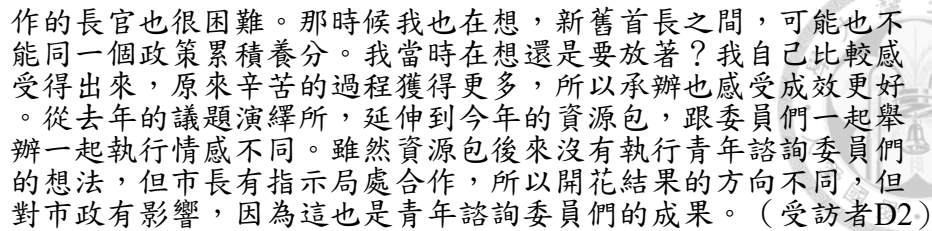 作的長官也很困難。那時候我也在想，新舊首長之間，可能也不
能同一個政策累積養分。我當時在想還是要放著？我自己比較感
受得出來，原來辛苦的過程獲得更多，所以承辦也感受成效更好
。從去年的議題演繹所，延伸到今年的資源包，跟委員們一起舉
辦一起執行情感不同。雖然資源包後來沒有執行青年諮詢委員們
的想法，但市長有指示局處合作，所以開花結果的方向不同，但
對市政有影響，因為這也是青年諮詢委員們的成果。（受訪者D2）